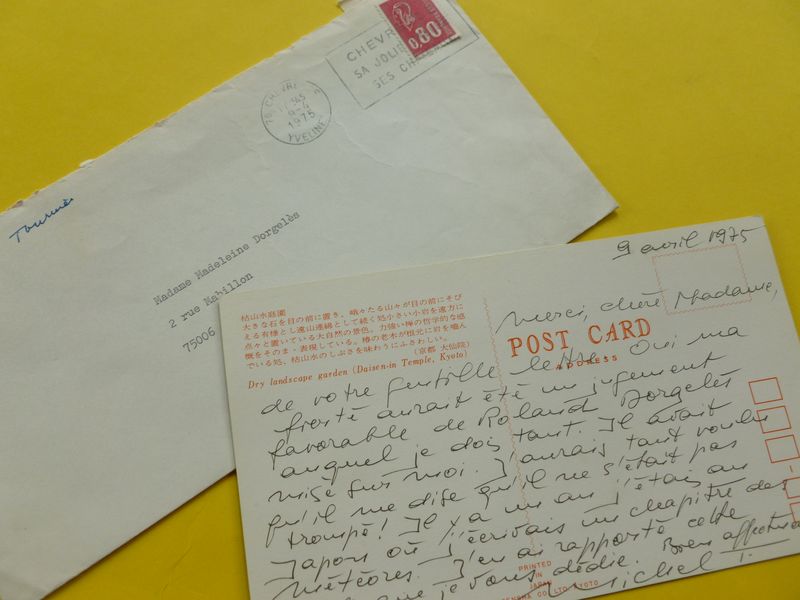 CHEVR
SA JOLIE
SES CH
0,80
78 CHEVRE
9-4
1975
YVELINE
Tournier
Madame Madeleine Dorgelès
2 rue Mabillon
75006
9 avril 1975
枯山水庭園
大きな石を目の前に置き、峨々たる山々が目の前にそび
える有様とし遠山連綿として続く処小さい小岩を遠方に
点々と置いている大自然の景色、力強い禅の哲学的な感
概をそのまゝ表現している。椿の老木が根元に岩を噛ん
でいる処、枯山水のしぶさを味わうにふさわしい。
(京都 大仙院)
Dry landscape garden (Daisen-in Temple, Kyoto)
POST CARD
ADDRESS
Merci, chère Madame,
de votre gentille lettre. Oui ma
fierté aurait été un jugement
favorable de Roland Dorgelès
auquel je dois tant. Il avait
misé sur moi. J'aurais tant voulu
qu'il me dise qu'il ne s'était pas
trompé! Il y a un an j'étais au
Japon où j'écrivais un chapitre des
météores. J'en ai rapporté cette
que je vous dédie. Bien affectueu
Michel T.
PRINTED
IN
JAPAN
CO. LTD KYOTO